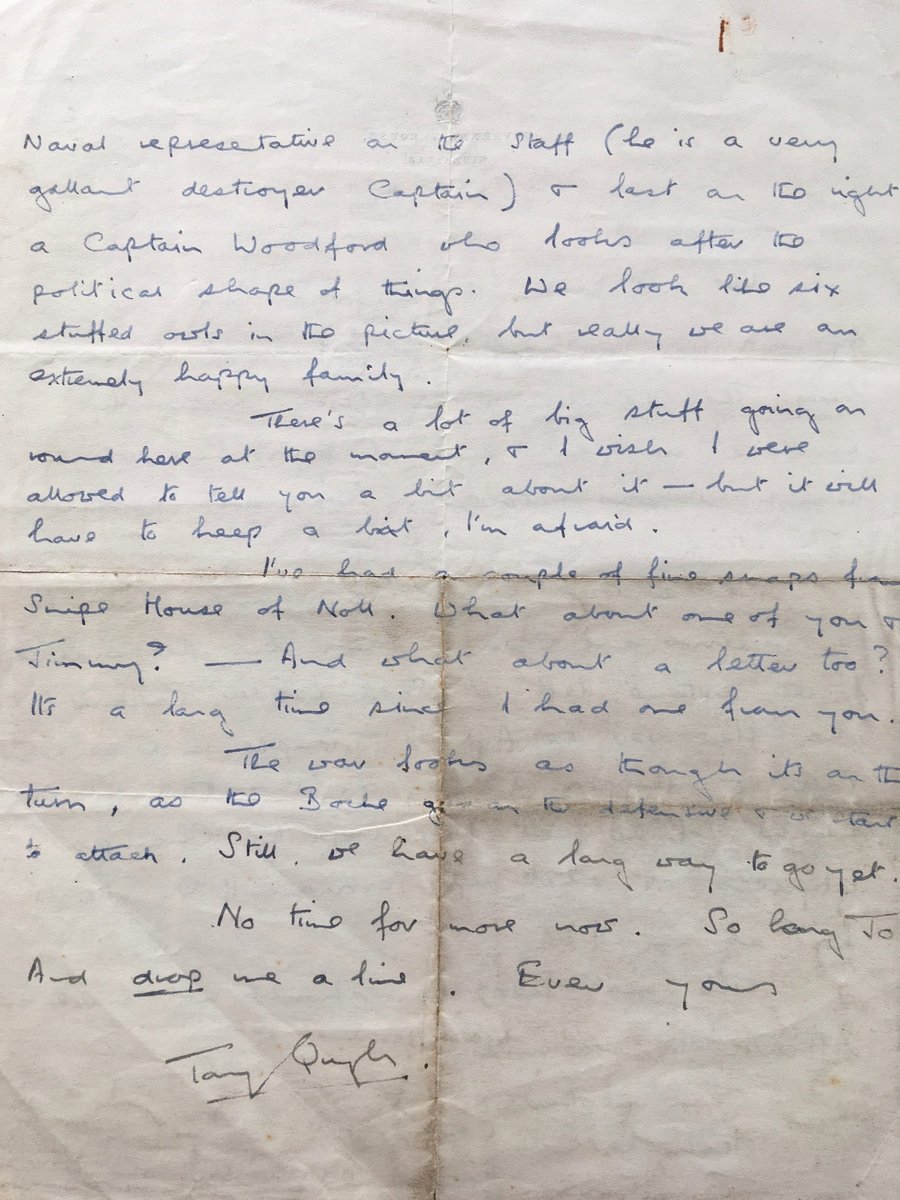 Naval representative on the Staff (he is a very
gallant destroyer Captain) & last on the right
a Captain Woodford who looks after the
political shape of things. We look like six
stuffed owls in the picture, but really we are an
extremely happy family.
There's a lot of big stuff going on
round here at the moment, & I wish I were
allowed to tell you a bit about it — but it will
have to keep a bit, I'm afraid.
I've had a couple of fine snaps from
Snipe House of Noll. What about one of you &
Jimmy? — And what about a letter too?
It's a long time since I had one from you.
The war looks as though it's on the
turn, as the Boche goes on the defensive & we start
to attack. Still, we have a long way to go yet.
No time for more now. So long Jo
And drop me a line. Ever yours
Tony Quayle.